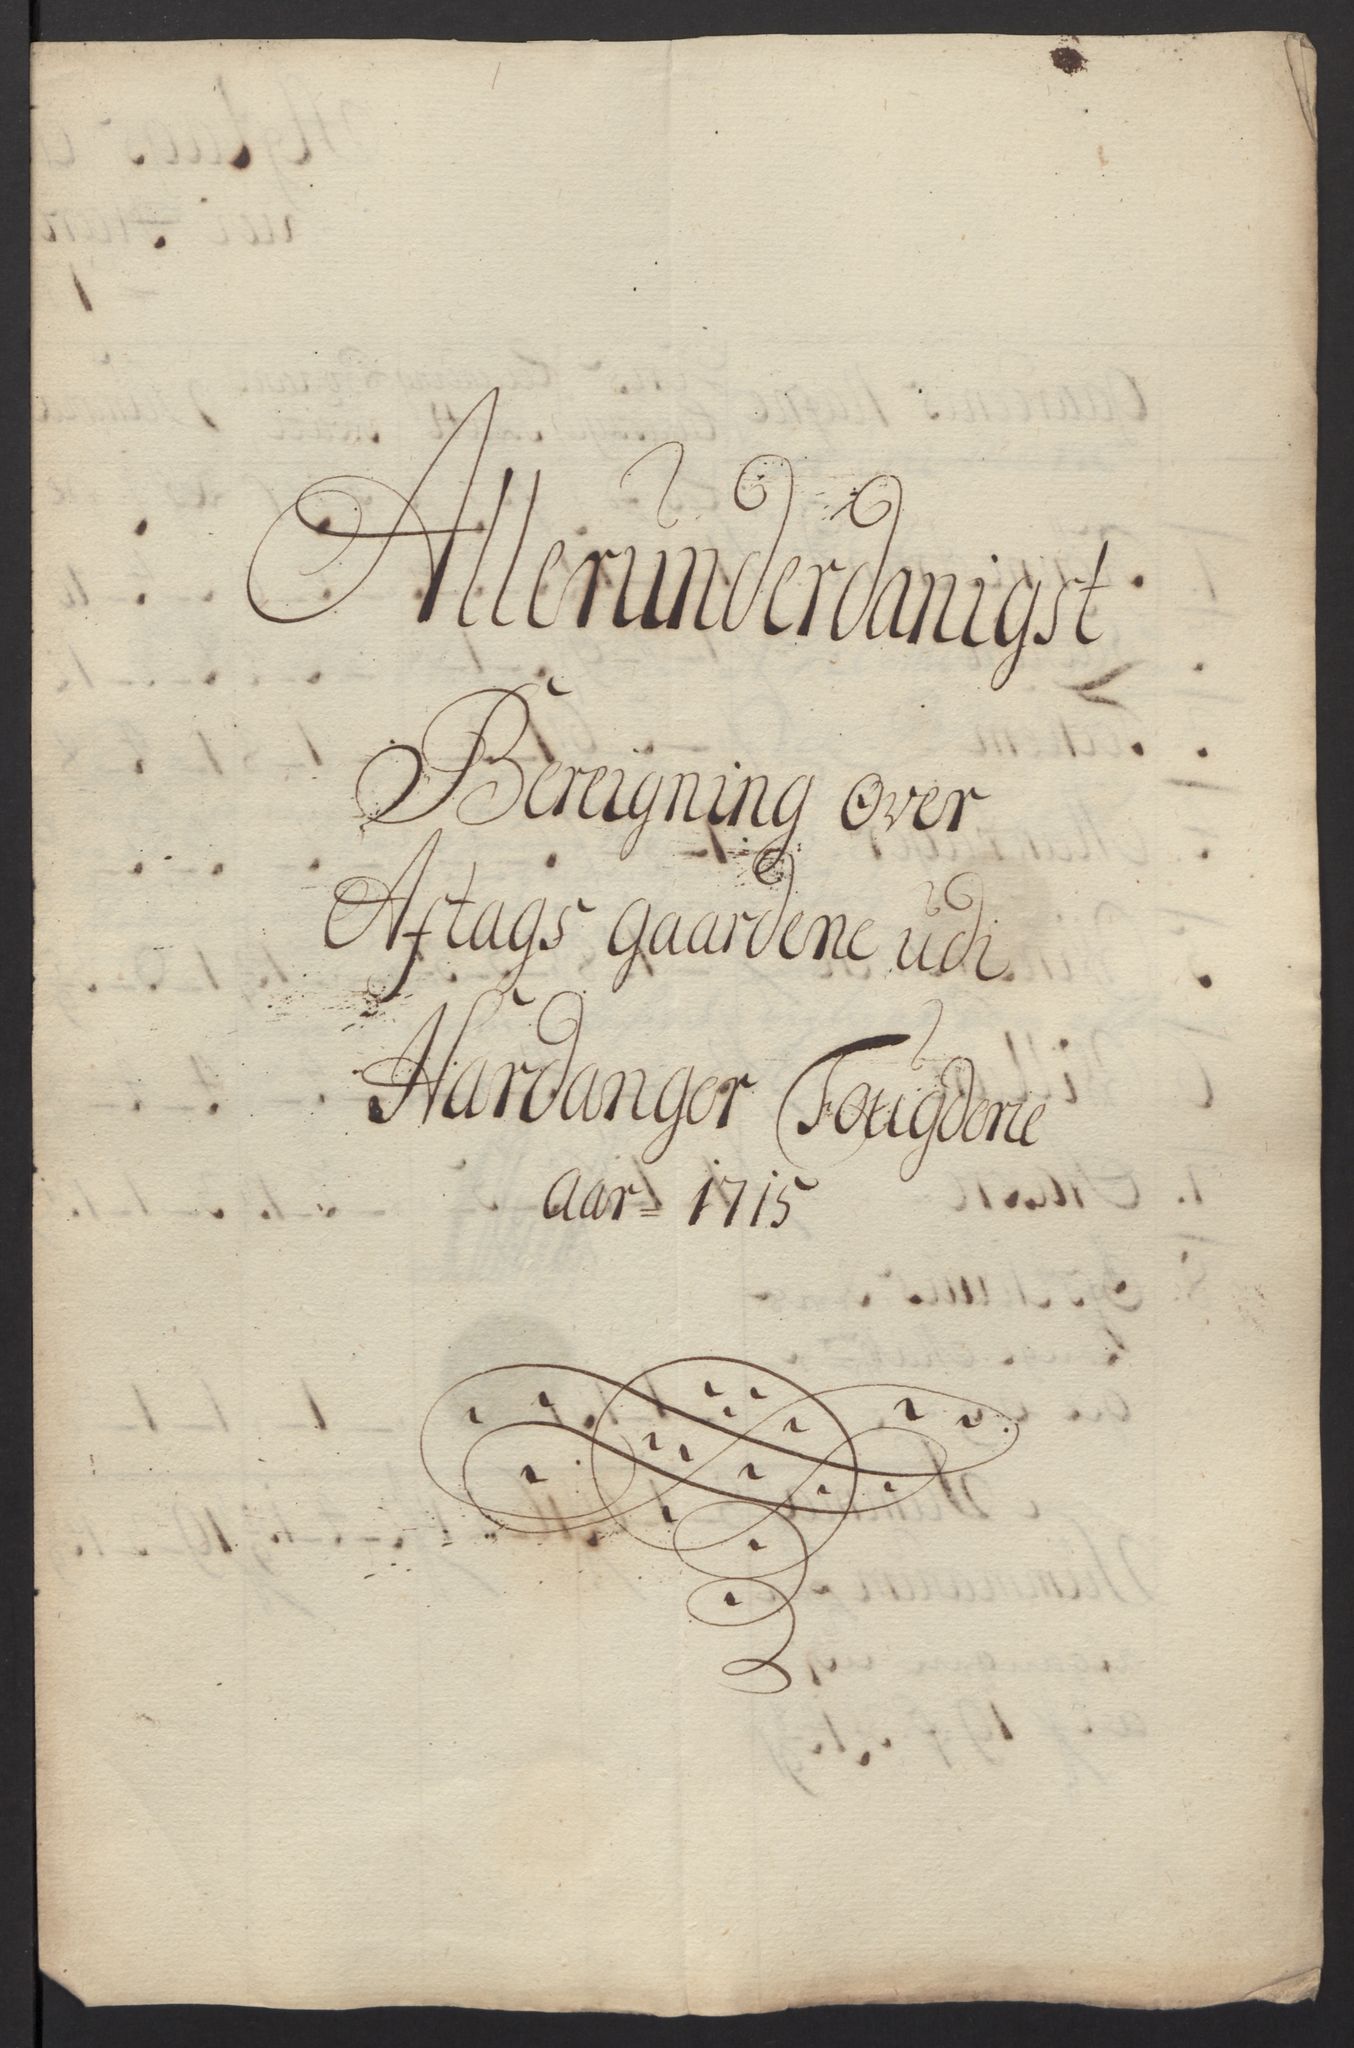 Allerunderdanigst
Bereigning over
Aftags gaardene udi
Hardanger Fougderie
aar= 1715